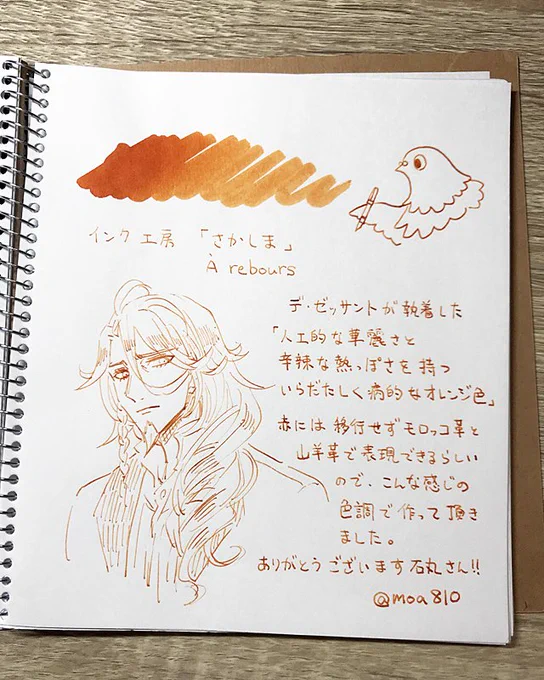 インク工房 「さかしま」
À rebours
デ・ゼッサントが執着した
「人工的な華麗さと
辛辣な熱っぽさを持つ
いらだたしく病的なオレンジ色」
赤には移行せずモロッコ革と
山羊革で表現できるらしい
ので、こんな感じの
色調で作って頂き
ました。
ありがとうございます石丸さん!!
@moa810